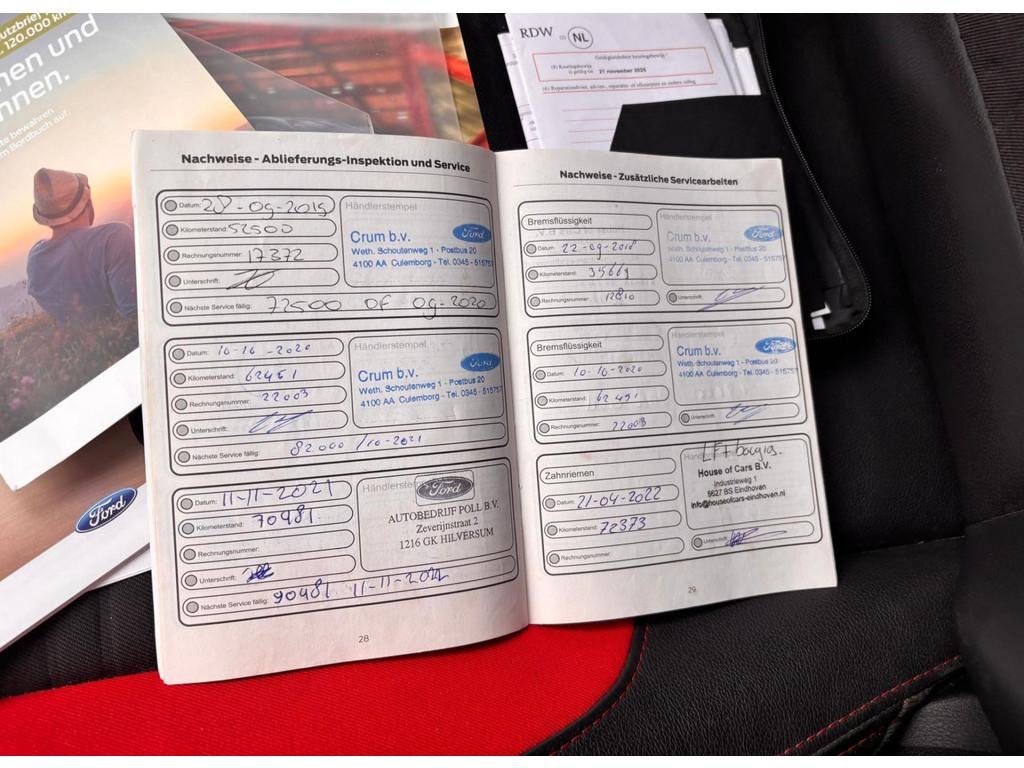 120.000 km
nen und
nnen.
te bewahren
m Bordbuch auf.
Ford
RDW in NL
21 november 2025
Nachweise - Ablieferungs-Inspektion und Service
Datum: 28-09-2019
Kilometerstand: 52500
Rechnungsnummer: 17372
Unterschrift:
Nächste Service fällig: 72500 OF 09-2020
Händlerstempel
Ford
Crum b.v.
Weth. Schoutenweg 1 - Postbus 20
4100 AA Culemborg - Tel. 0345 - 515757
Datum: 10-10-2020
Kilometerstand: 62451
Rechnungsnummer: 22003
Unterschrift:
Nächste Service fällig: 82.000 /10-2021
Händlerstempel
Ford
Crum b.v.
Weth. Schoutenweg 1 - Postbus 20
4100 AA Culemborg - Tel. 0345 - 515757
Datum: 11-11-2021
Kilometerstand: 70481
Rechnungsnummer:
Unterschrift:
Nächste Service fällig: 90481 11-11-2022
Händlerstempel
Ford
AUTOBEDRIJF POLL B.V.
Zeverijnstraat 2
1216 GK HILVERSUM
28
Nachweise - Zusätzliche Servicearbeiten
Bremsflüssigkeit
Datum: 22-09-2018
Kilometerstand: 35669
Rechnungsnummer: 12810
Händlerstempel
Ford
Crum b.v.
Weth. Schoutenweg 1 - Postbus 20
4100 AA Culemborg - Tel. 0345 - 515757
Unterschrift:
Bremsflüssigkeit
Datum: 10-10-2020
Kilometerstand: 62451
Rechnungsnummer: 22003
Händlerstempel
Ford
Crum b.v.
Weth. Schoutenweg 1 - Postbus 20
4100 AA Culemborg - Tel. 0345 - 515757
Unterschrift:
Zahnriemen
Datum: 21-04-2022
Kilometerstand: 72373
Rechnungsnummer:
House of Cars B.V.
Industrieweg 1
5627 BS Eindhoven
info@houseofcars-eindhoven.nl
Unterschrift:
29